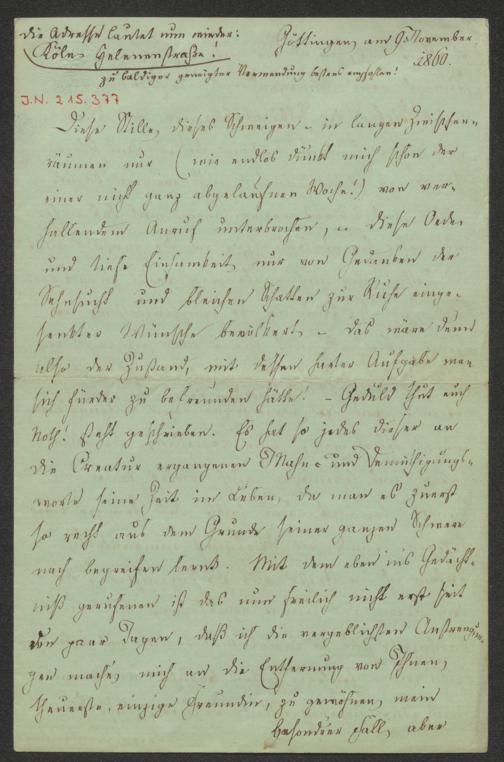 die Adresse lautet nun wieder:
Köln, Helenenstraße!
Göttingen, am 9. November
1860.
zu baldiger geneigter Verwendung bestens empfohlen!
J.N. 215.377
Diese Stille, dieses Schweigen – in langen Zwischen-
räumen nur (wie endlos dünkt mich schon der
einer nicht ganz abgelaufnen Woche!) von ver-
hallendem Anruf unterbrochen, – diese Oede
und tiefe Einsamkeit, nur von Gedanken der
Sehnsucht und bleichen Schatten zur Ruhe einge-
senkter Wünsche bevölkert – das wäre denn
also der Zustand, mit dessen harter Aufgabe man
sich fürder zu befreunden hätte! – Geduld thut euch
Noth! steht geschrieben. Es hat so jedes dieser an
die Creatur ergangenen Mahn- und Demüthigungs-
worte seine Zeit im Leben, da man es zuerst
so recht aus dem Grunde seiner ganzen Schwere
nach begreifen lernt. Mit dem eben ins Gedächt-
niß gerufenen ist das nun freilich nicht erst seit
den paar Tagen, daß ich die vergeblichsten Anstrengun-
gen mache, mich an die Entfernung von Ihnen,
theuerste, einzige Freundin, zu gewöhnen, mein
besondrer Fall, aber